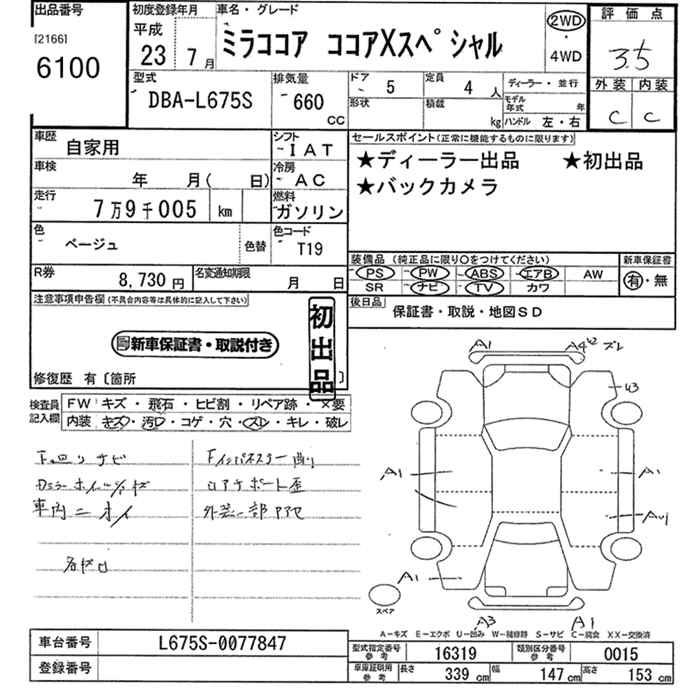 出品番号
[2166]
6100
初度登録年月
平成
23 7月
車名・グレード
ミラココア ココアXスペシャル
2WD
・
4WD
評価点
3.5
外装 内装
C C
型式
DBA-L675S
排気量
660
CC
ドア 5
定員 4人
ディーラー・並行
形状
積載 kg
モデル年式 年
ハンドル 左・右
車歴 自家用
シフト
IAT
車検 年 月( 日)
冷房
AC
走行 7万9千005 km
燃料
ガソリン
色 ベージュ 色替
色コード
T19
R券 8,730円
名変通知期限 月 日
セールスポイント(正常に機能するものに限ります)
★ディーラー出品 ★初出品
★バックカメラ
装備品 (純正品に限り○をつけてください)
PS PW ABS エアB AW
SR ナビ TV カワ
新車保証書
有・無
後日品 保証書・取説・地図SD
注意事項申告欄(不具合内容等は具体的に記入して下さい)
新車保証書・取説付き
初出品
修復歴 有〔箇所 〕
検査員記入欄
FW キズ・飛石・ヒビ割・リペア跡・×要
内装 キズ・汚レ・コゲ・穴・スレ・キレ・破レ
下廻りサビ
車内ニオイ
外装一部アセ
A1
A4
ズレ
U3
A1
A1
A1
A3
A1
スペア
A-キズ E-エクボ U-凹み W-補修跡 S-サビ C-腐食 XX-交換済
車台番号 L675S-0077847
登録番号
型式指定番号
参考
16319
類別区分番号
参考
0015
車庫証明用
参考
長さ 339cm 幅 147cm 高さ 153cm